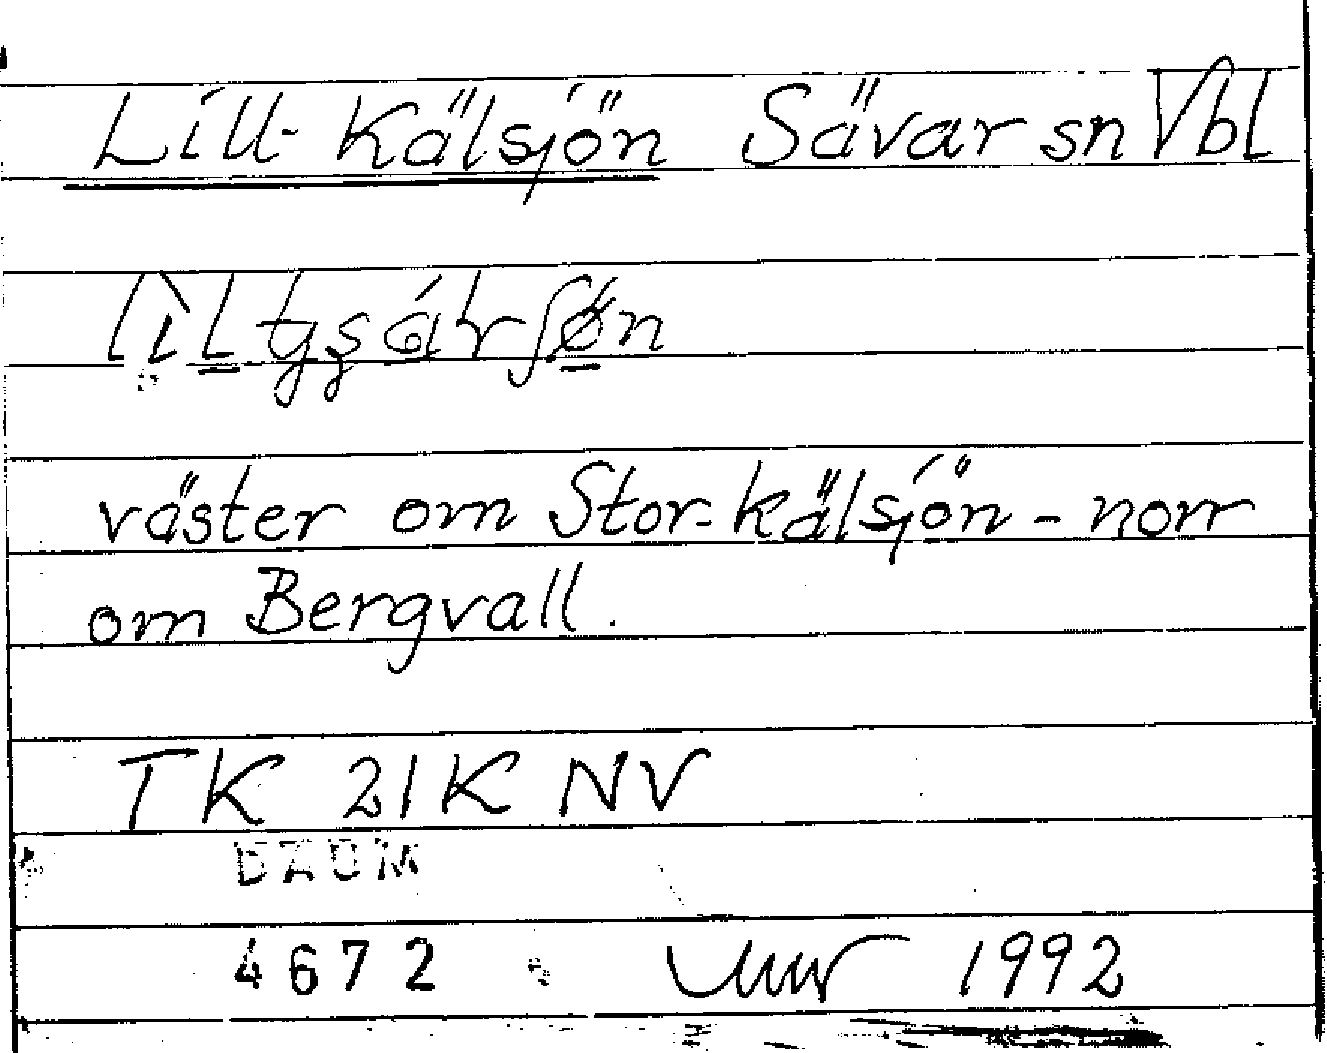 Lill-Kälsjön Sävar sn Vbl
väster om Stor-kälsjön - norr
om Bergvall.
TK 21K NV
DAUM
4672 1992